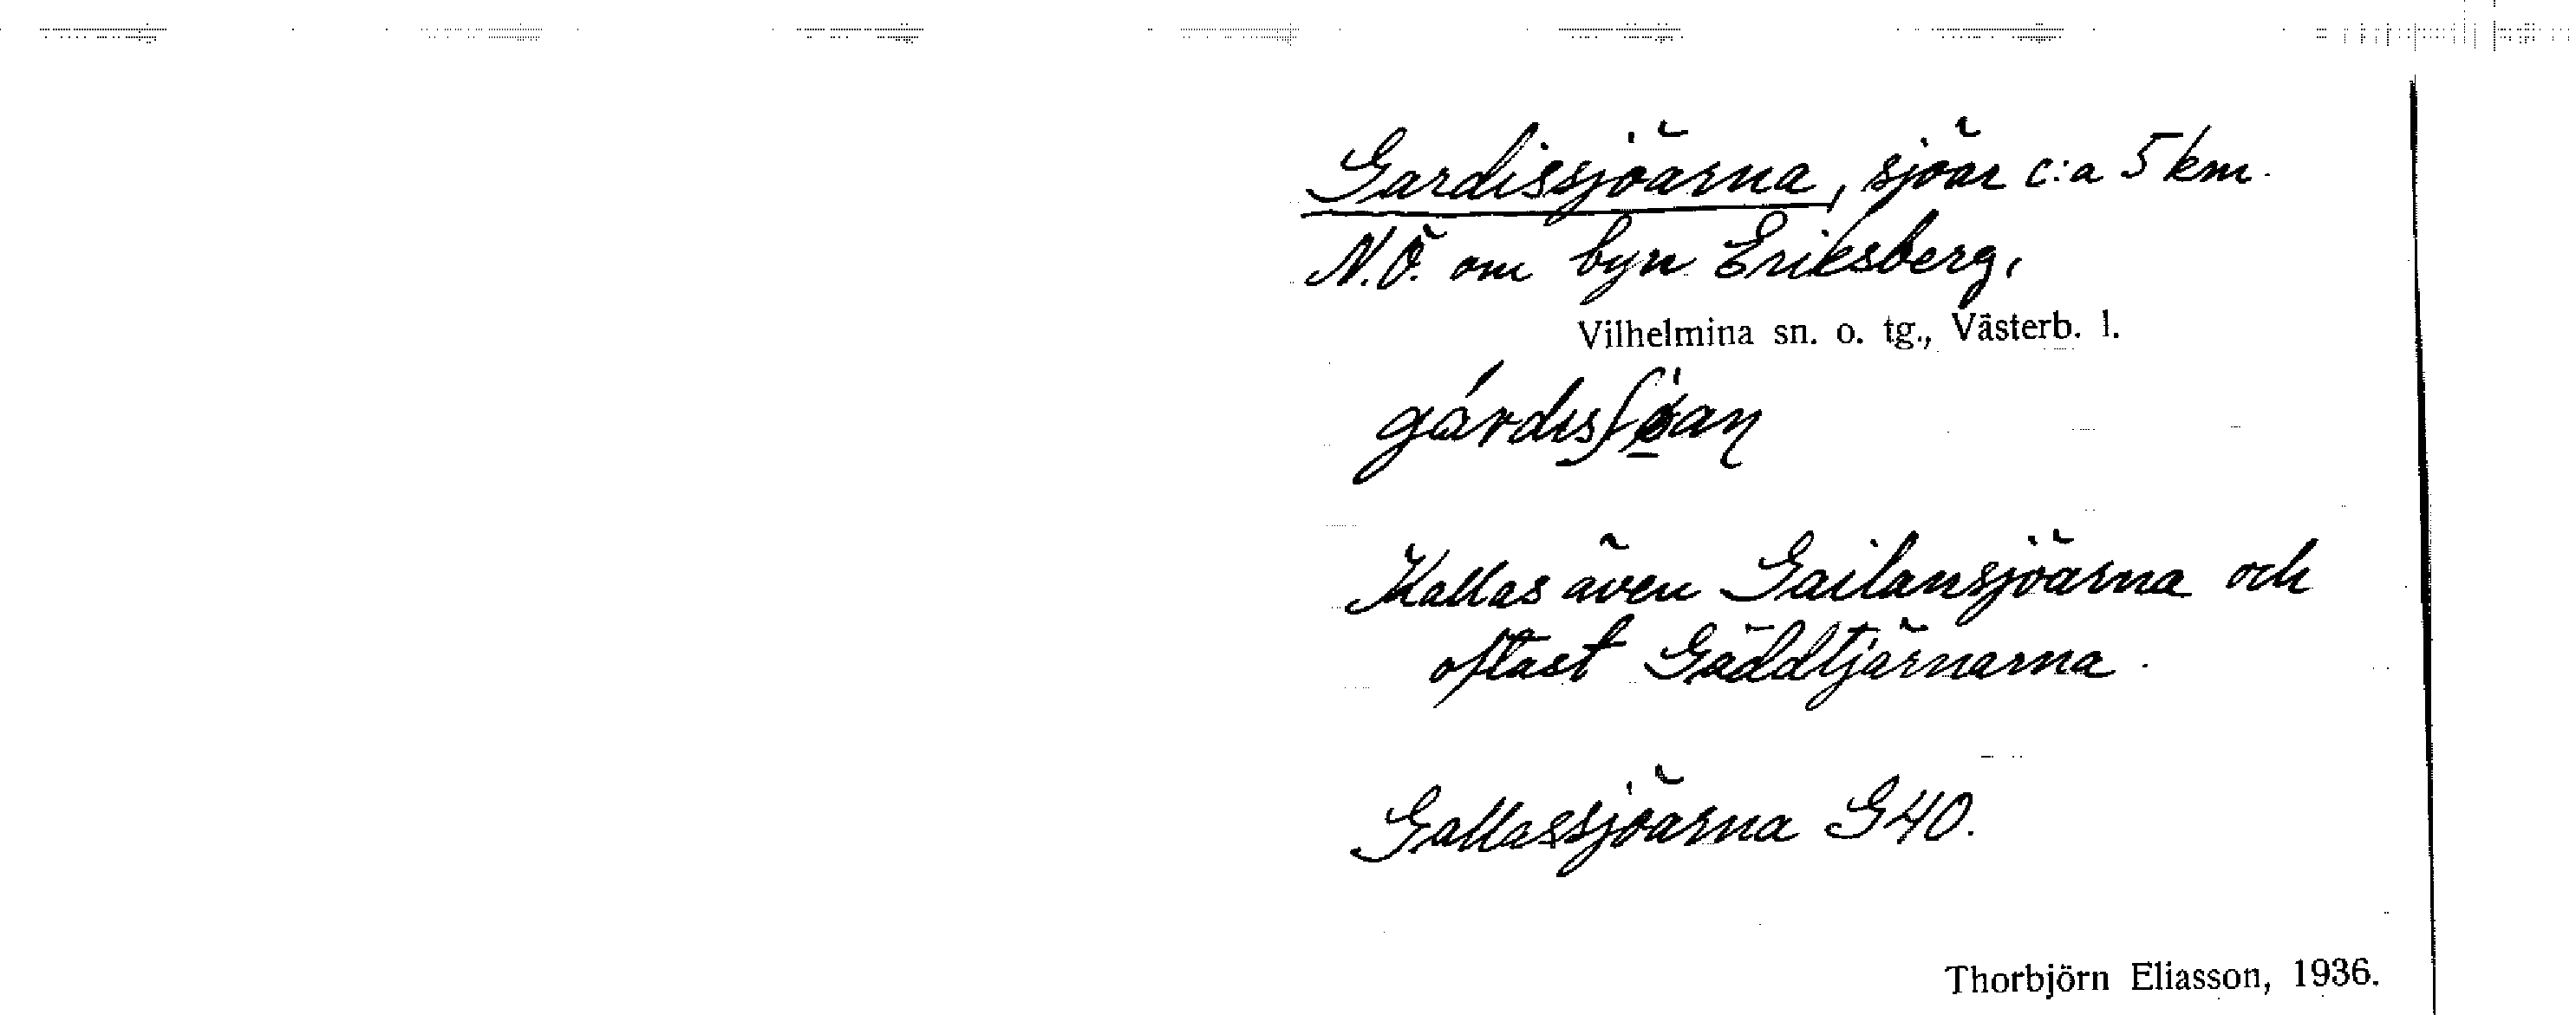 Gardissjöarna, sjöar c:a 5 km.
N.Ö. om byn Eriksberg,
Vilhelmina sn. o. tg., Västerb. l.
Kallas även Gailansjöarna och
oftast Gäddtjärnarna.
Gallassjöarna G40.
Thorbjörn Eliasson, 1936.